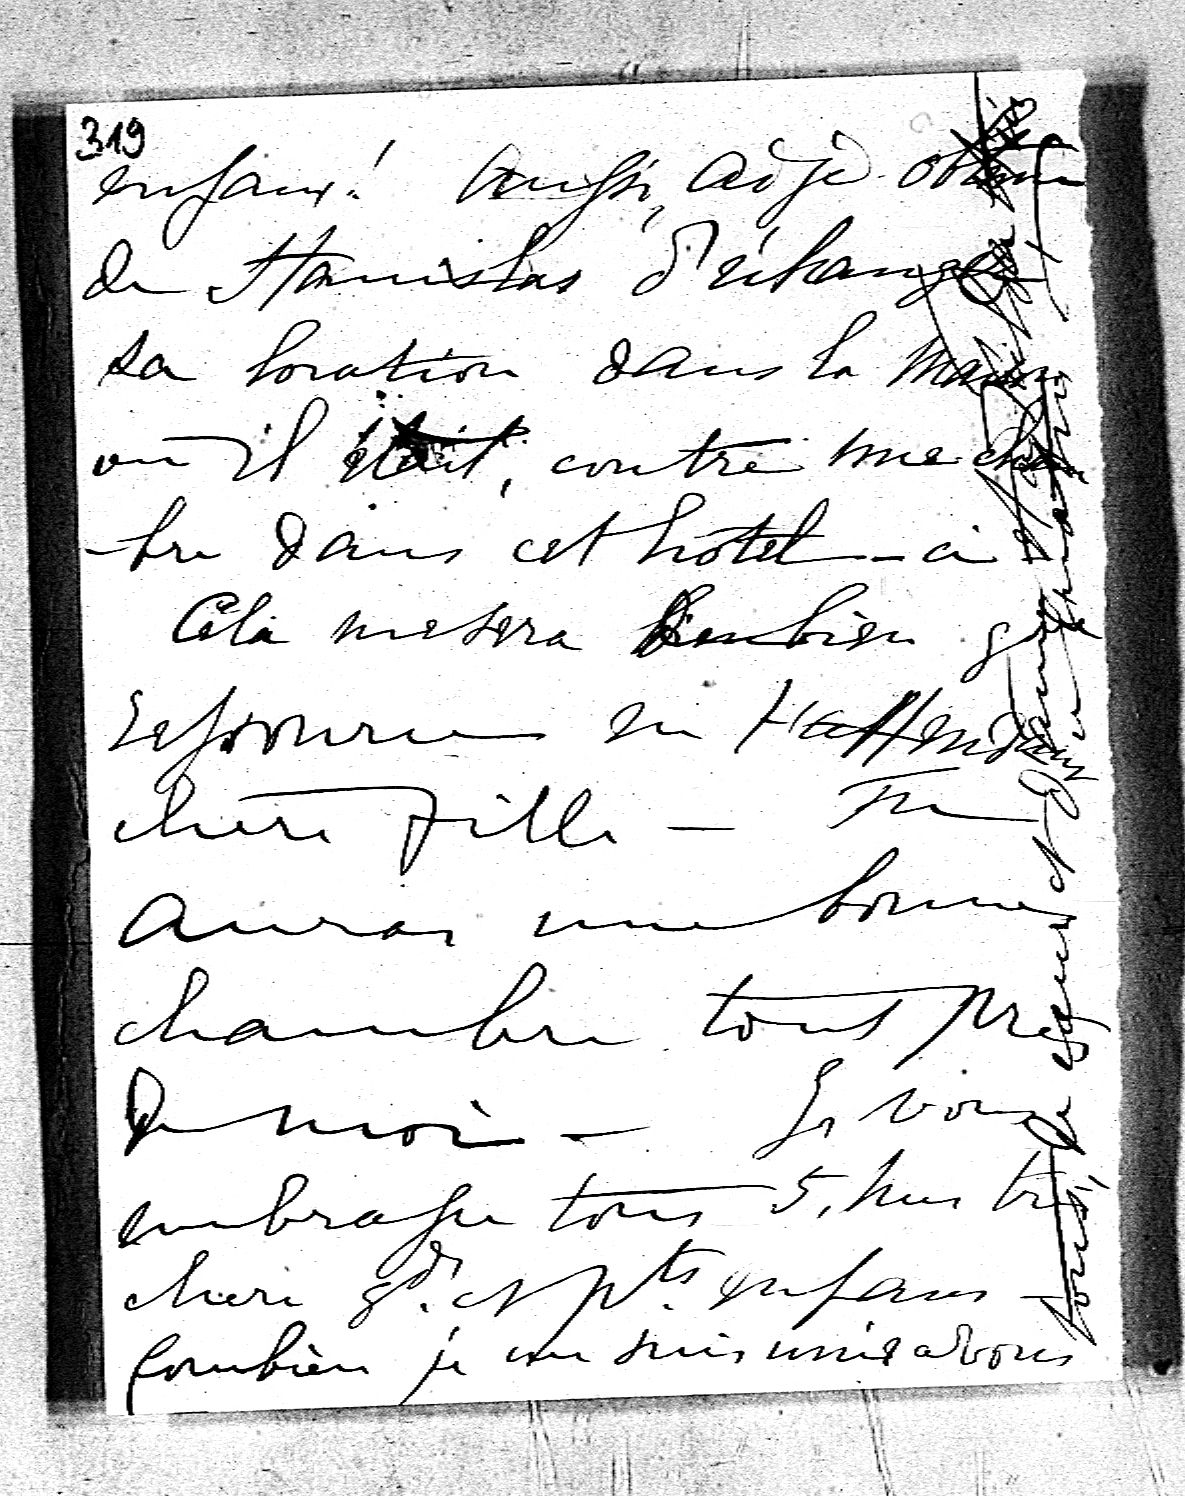 319
enfans! Aussi, ai je obtenu
de Stanislas d'échanger
sa location dans la maison
où il était, contre une cham
-bre dans cet hôtel-ci
Cela me sera bien bien
ressource en t'attendant
chère fille — Tu
auras une bonne
chambre tout près
de moi — Je vous
embrasse tous 5, mes très
chers gds. et pts. enfans —
Combien je me suis unie à vous
tous, de coeur et d'âme